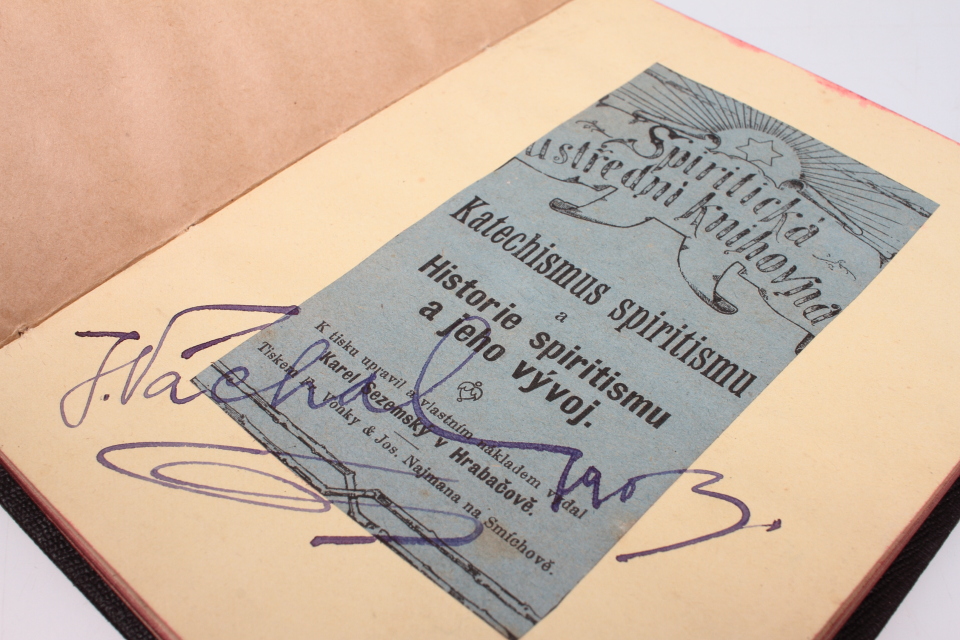 Spiritická
ústřední knihovna
Katechismus spiritismu
a
Historie spiritismu
a jeho vývoj.
K tisku upravil a vlastním nákladem vydal
Karel Sezemský v Hrabačově.
Vonky & Jos. Najmana na Smíchově.
J. Váchal 1903.